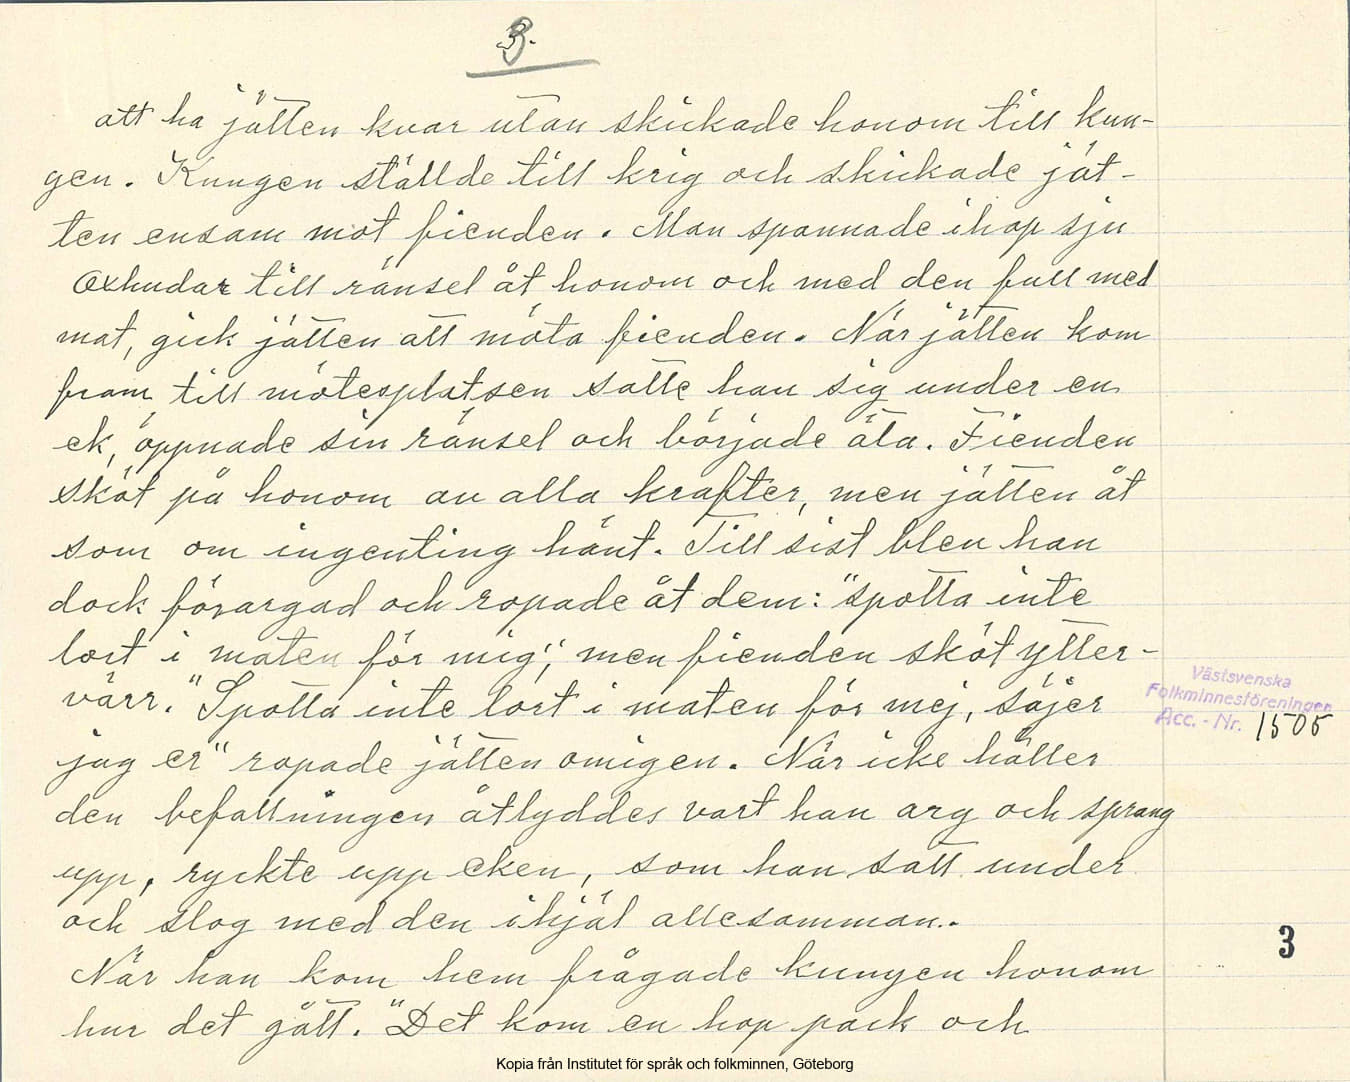 3.
att ha jätten kvar utan skickade honom till kun-
gen. Kungen ställde till krig och skickade jät-
ten ensam mot fienden. Man spannade ihop sju
oxhudar till ränsel åt honom och med den full med
mat, gick jätten att möta fienden. När jätten kom
fram till mötesplatsen satte han sig under en
ek, öppnade sin ränsel och började äta. Fienden
sköt på honom av alla krafter, men jätten åt
som om ingenting hänt. Till sist blev han
dock förargad och ropade åt dem: "spotta inte
lort i maten för mig", men fienden sköt ytter-
värr. "Spotta inte lort i maten för mej, säjer
jag er" ropade jätten omigen. När icke häller
den befallningen åtlyddes vart han arg och sprang
upp, ryckte upp eken, som han satt under
och slog med den ihjäl allesamman.
När han kom hem frågade kungen honom
hur det gått. "Det kom en hop pack och
Västsvenska
Folkminnesföreningen
Acc. - Nr. 1505
3
Kopia från Institutet för språk och folkminnen, Göteborg